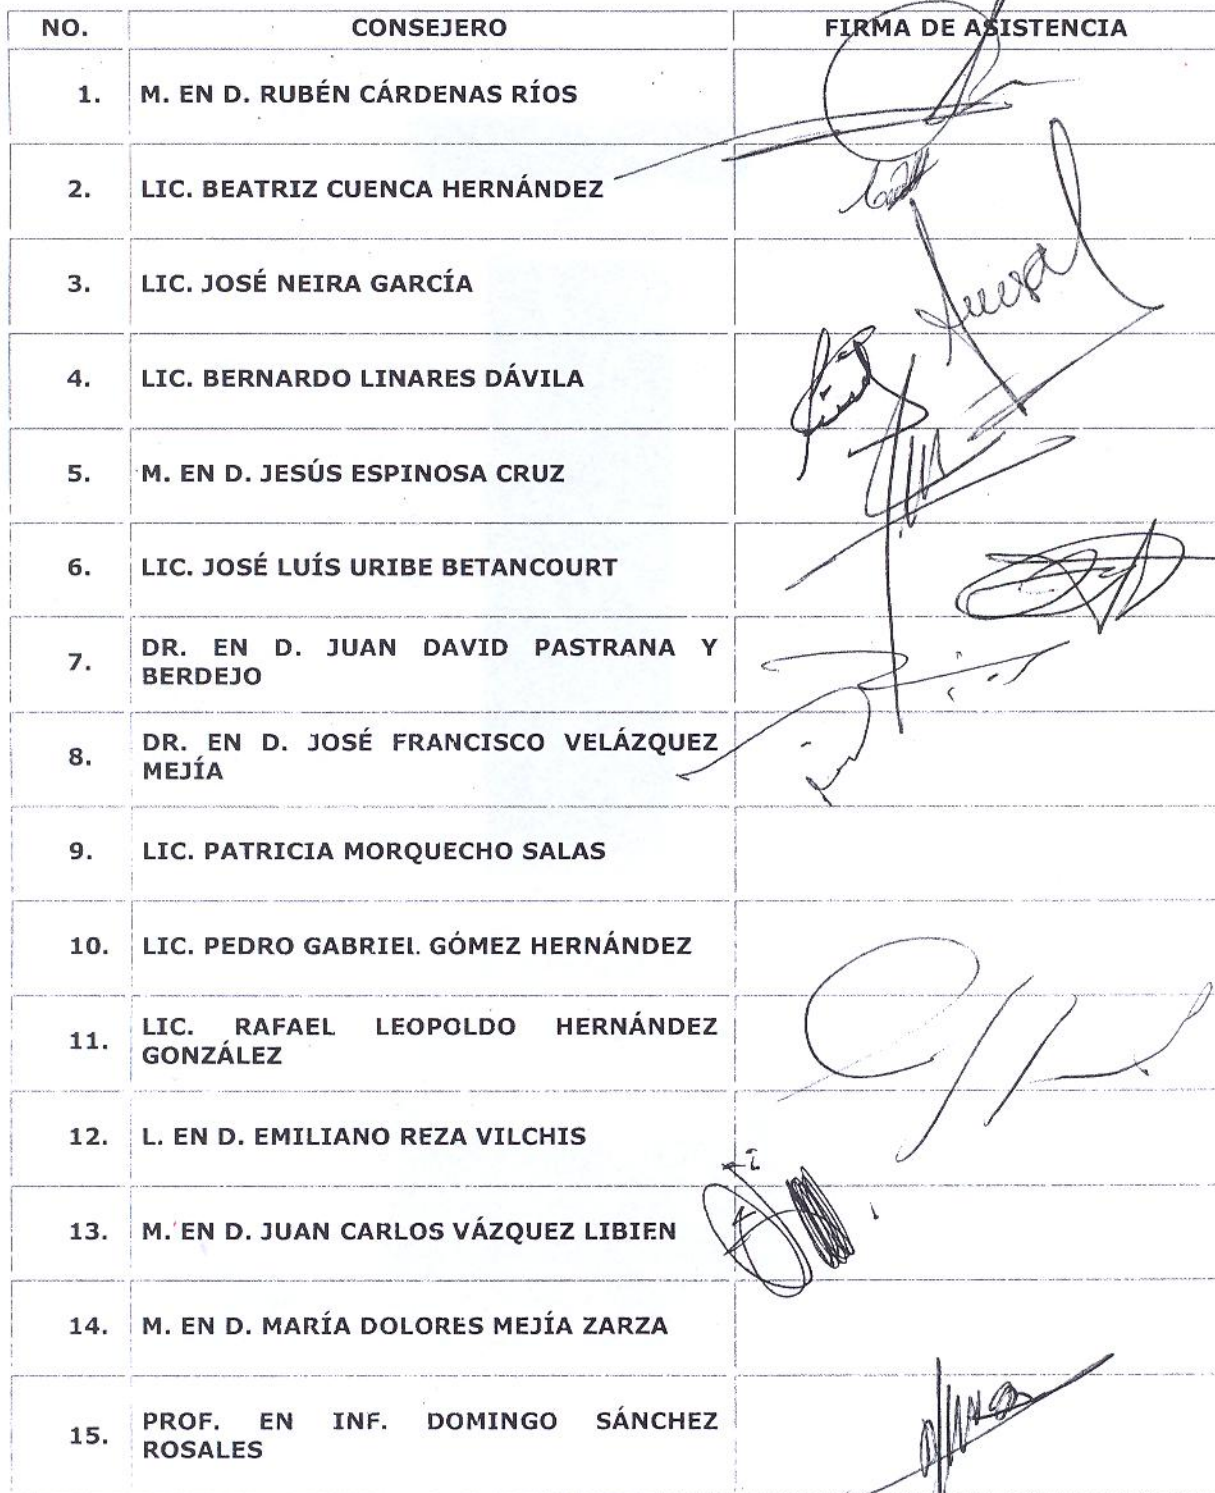 NO. CONSEJERO FIRMA DE ASISTENCIA
1. M. EN D. RUBÉN CÁRDENAS RÍOS
2. LIC. BEATRIZ CUENCA HERNÁNDEZ
3. LIC. JOSÉ NEIRA GARCÍA
4. LIC. BERNARDO LINARES DÁVILA
5. M. EN D. JESÚS ESPINOSA CRUZ
6. LIC. JOSÉ LUÍS URIBE BETANCOURT
7. DR. EN D. JUAN DAVID PASTRANA Y
BERDEJO
8. DR. EN D. JOSÉ FRANCISCO VELÁZQUEZ
MEJÍA
9. LIC. PATRICIA MORQUECHO SALAS
10. LIC. PEDRO GABRIEL GÓMEZ HERNÁNDEZ
11. LIC. RAFAEL LEOPOLDO HERNÁNDEZ
GONZÁLEZ
12. L. EN D. EMILIANO REZA VILCHIS
13. M. EN D. JUAN CARLOS VÁZQUEZ LIBIEN
14. M. EN D. MARÍA DOLORES MEJÍA ZARZA
15. PROF. EN INF. DOMINGO SÁNCHEZ
ROSALES